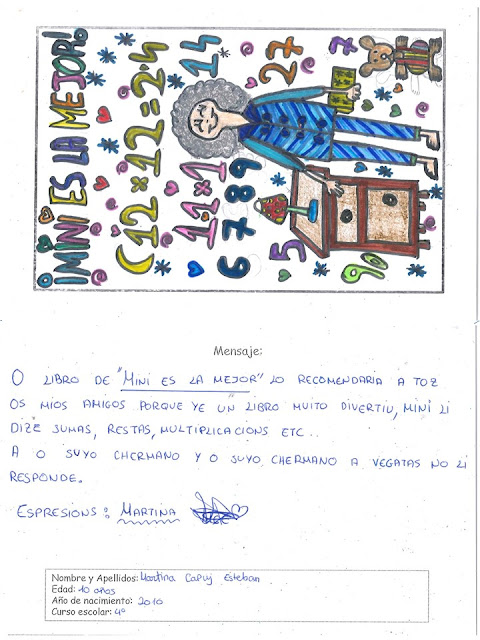 ¡MINI ES LA MEJOR!
(12x12=24
11x1
14
6789
27
7
5
90
Mensaje:
O LIBRO DE "MINI ES LA MEJOR" LO RECOMENDARIA A TOZ
OS MIOS AMIGOS PORQUE YE UN LIBRO MUITO DIVERTIU, MINI LI
DIZE SUMAS, RESTAS, MULTIPLICACIONS ETC...
A O SUYO CHERMANO Y O SUYO CHERMANO A VEGATAS NO LI
RESPONDE.
ESPRESIONS: MARTINA
Nombre y Apellidos: Martina Capuj Esteban
Edad: 10 años
Año de nacimiento: 2010
Curso escolar: 4º